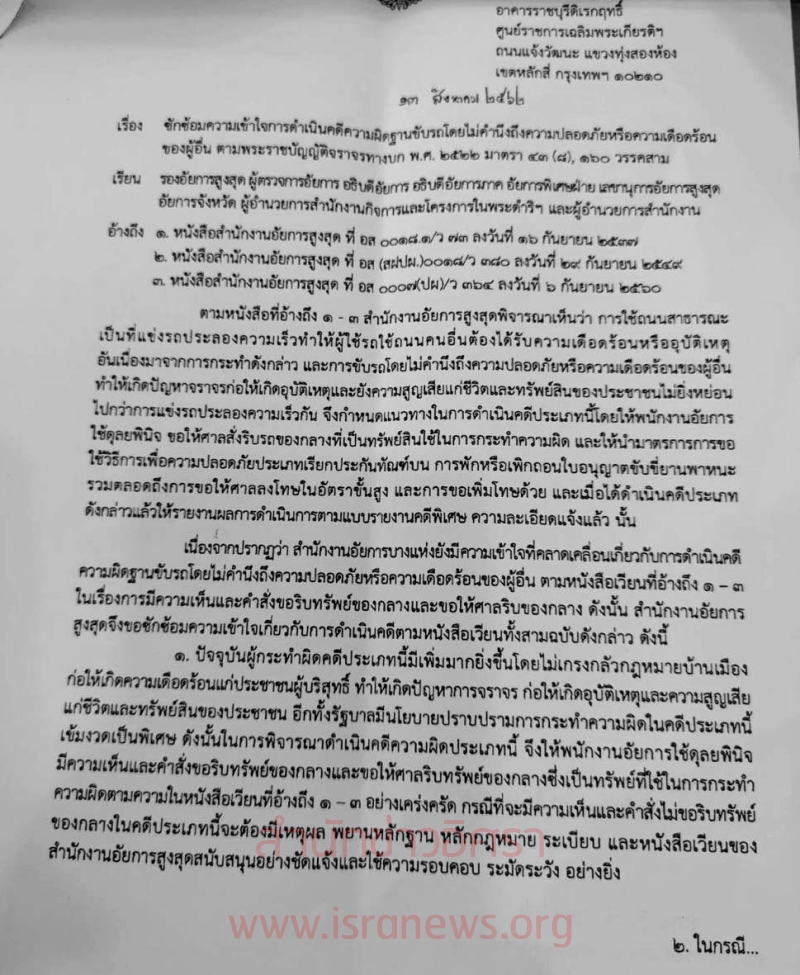 อาคารราชบุรีดิเรกฤทธิ์
ศูนย์ราชการเฉลิมพระเกียรติฯ
ถนนแจ้งวัฒนะ แขวงทุ่งสองห้อง
เขตหลักสี่ กรุงเทพฯ ๑๐๒๑๐
๑๓ สิงหาคม ๒๕๖๒
เรื่อง ซักซ้อมความเข้าใจการดำเนินคดีความผิดฐานขับรถโดยไม่คำนึงถึงความปลอดภัยหรือความเดือดร้อน
ของผู้อื่น ตามพระราชบัญญัติจราจรทางบก พ.ศ. ๒๕๒๒ มาตรา ๔๓ (๘), ๑๖๐ วรรคสาม
เรียน รองอัยการสูงสุด ผู้ตรวจการอัยการ อธิบดีอัยการ อธิบดีอัยการภาค อัยการพิเศษฝ่าย เลขานุการอัยการสูงสุด
อัยการจังหวัด ผู้อำนวยการสำนักงานกิจการและโครงการในพระดำริฯ และผู้อำนวยการสำนักงาน
อ้างถึง ๑. หนังสือสำนักงานอัยการสูงสุด ที่ อส ๐๐๑๘.๑/ว ๗๓ ลงวันที่ ๑๖ กันยายน ๒๕๓๗
๒. หนังสือสำนักงานอัยการสูงสุด ที่ อส (สฝปผ.)๐๐๑๘/ว ๓๘๐ ลงวันที่ ๒๙ กันยายน ๒๕๔๙
๓. หนังสือสำนักงานอัยการสูงสุด ที่ อส ๐๐๐๗(ปผ)/ว ๓๖๔ ลงวันที่ ๖ กันยายน ๒๕๖๐
ตามหนังสือที่อ้างถึง ๑ - ๓ สำนักงานอัยการสูงสุดพิจารณาเห็นว่า การใช้ถนนสาธารณะ
เป็นที่แข่งรถประลองความเร็วทำให้ผู้ใช้รถใช้ถนนคนอื่นต้องได้รับความเดือดร้อนหรืออุบัติเหตุ
อันเนื่องมาจากการกระทำดังกล่าว และการขับรถโดยไม่คำนึงถึงความปลอดภัยหรือความเดือดร้อนของผู้อื่น
ทำให้เกิดปัญหาจราจรก่อให้เกิดอุบัติเหตุและยังความสูญเสียแก่ชีวิตและทรัพย์สินของประชาชนไม่ยิ่งหย่อน
ไปกว่าการแข่งรถประลองความเร็วกัน จึงกำหนดแนวทางในการดำเนินคดีประเภทนี้โดยให้พนักงานอัยการ
ใช้ดุลยพินิจ ขอให้ศาลสั่งริบรถของกลางที่เป็นทรัพย์สินใช้ในการกระทำความผิด และให้นำมาตรการการขอ
ใช้วิธีการเพื่อความปลอดภัยประเภทเรียกประกันทัณฑ์บน การพักหรือเพิกถอนใบอนุญาตขับขี่ยานพาหนะ
รวมตลอดถึงการขอให้ศาลลงโทษในอัตราขั้นสูง และการขอเพิ่มโทษด้วย และเมื่อได้ดำเนินคดีประเภท
ดังกล่าวแล้วให้รายงานผลการดำเนินการตามแบบรายงานคดีพิเศษ ความละเอียดแจ้งแล้ว นั้น
เนื่องจากปรากฏว่า สำนักงานอัยการบางแห่งยังมีความเข้าใจที่คลาดเคลื่อนเกี่ยวกับการดำเนินคดี
ความผิดฐานขับรถโดยไม่คำนึงถึงความปลอดภัยหรือความเดือดร้อนของผู้อื่น ตามหนังสือเวียนที่อ้างถึง ๑ – ๓
ในเรื่องการมีความเห็นและคำสั่งขอริบทรัพย์ของกลางและขอให้ศาลริบของกลาง ดังนั้น สำนักงานอัยการ
สูงสุดจึงขอซักซ้อมความเข้าใจเกี่ยวกับการดำเนินคดีตามหนังสือเวียนทั้งสามฉบับดังกล่าว ดังนี้
๑. ปัจจุบันผู้กระทำผิดคดีประเภทนี้มีเพิ่มมากยิ่งขึ้นโดยไม่เกรงกลัวกฎหมายบ้านเมือง
ก่อให้เกิดความเดือดร้อนแก่ประชาชนผู้บริสุทธิ์ ทำให้เกิดปัญหาการจราจร ก่อให้เกิดอุบัติเหตุและความสูญเสีย
แก่ชีวิตและทรัพย์สินของประชาชน อีกทั้งรัฐบาลมีนโยบายปราบปรามการกระทำความผิดในคดีประเภทนี้
เข้มงวดเป็นพิเศษ ดังนั้นในการพิจารณาดำเนินคดีความผิดประเภทนี้ จึงให้พนักงานอัยการใช้ดุลยพินิจ
มีความเห็นและคำสั่งขอริบทรัพย์ของกลางและขอให้ศาลริบทรัพย์ของกลางซึ่งเป็นทรัพย์ที่ใช้ในการกระทำ
ความผิดตามความในหนังสือเวียนที่อ้างถึง ๑ – ๓ อย่างเคร่งครัด กรณีที่จะมีความเห็นและคำสั่งไม่ขอริบทรัพย์
ของกลางในคดีประเภทนี้จะต้องมีเหตุผล พยานหลักฐาน หลักกฎหมาย ระเบียบ และหนังสือเวียนของ
สำนักงานอัยการสูงสุดสนับสนุนอย่างชัดแจ้งและใช้ความรอบคอบ ระมัดระวัง อย่างยิ่ง
สำนักข่าวอิศรา
www.isranews.org
๒. ในกรณี...